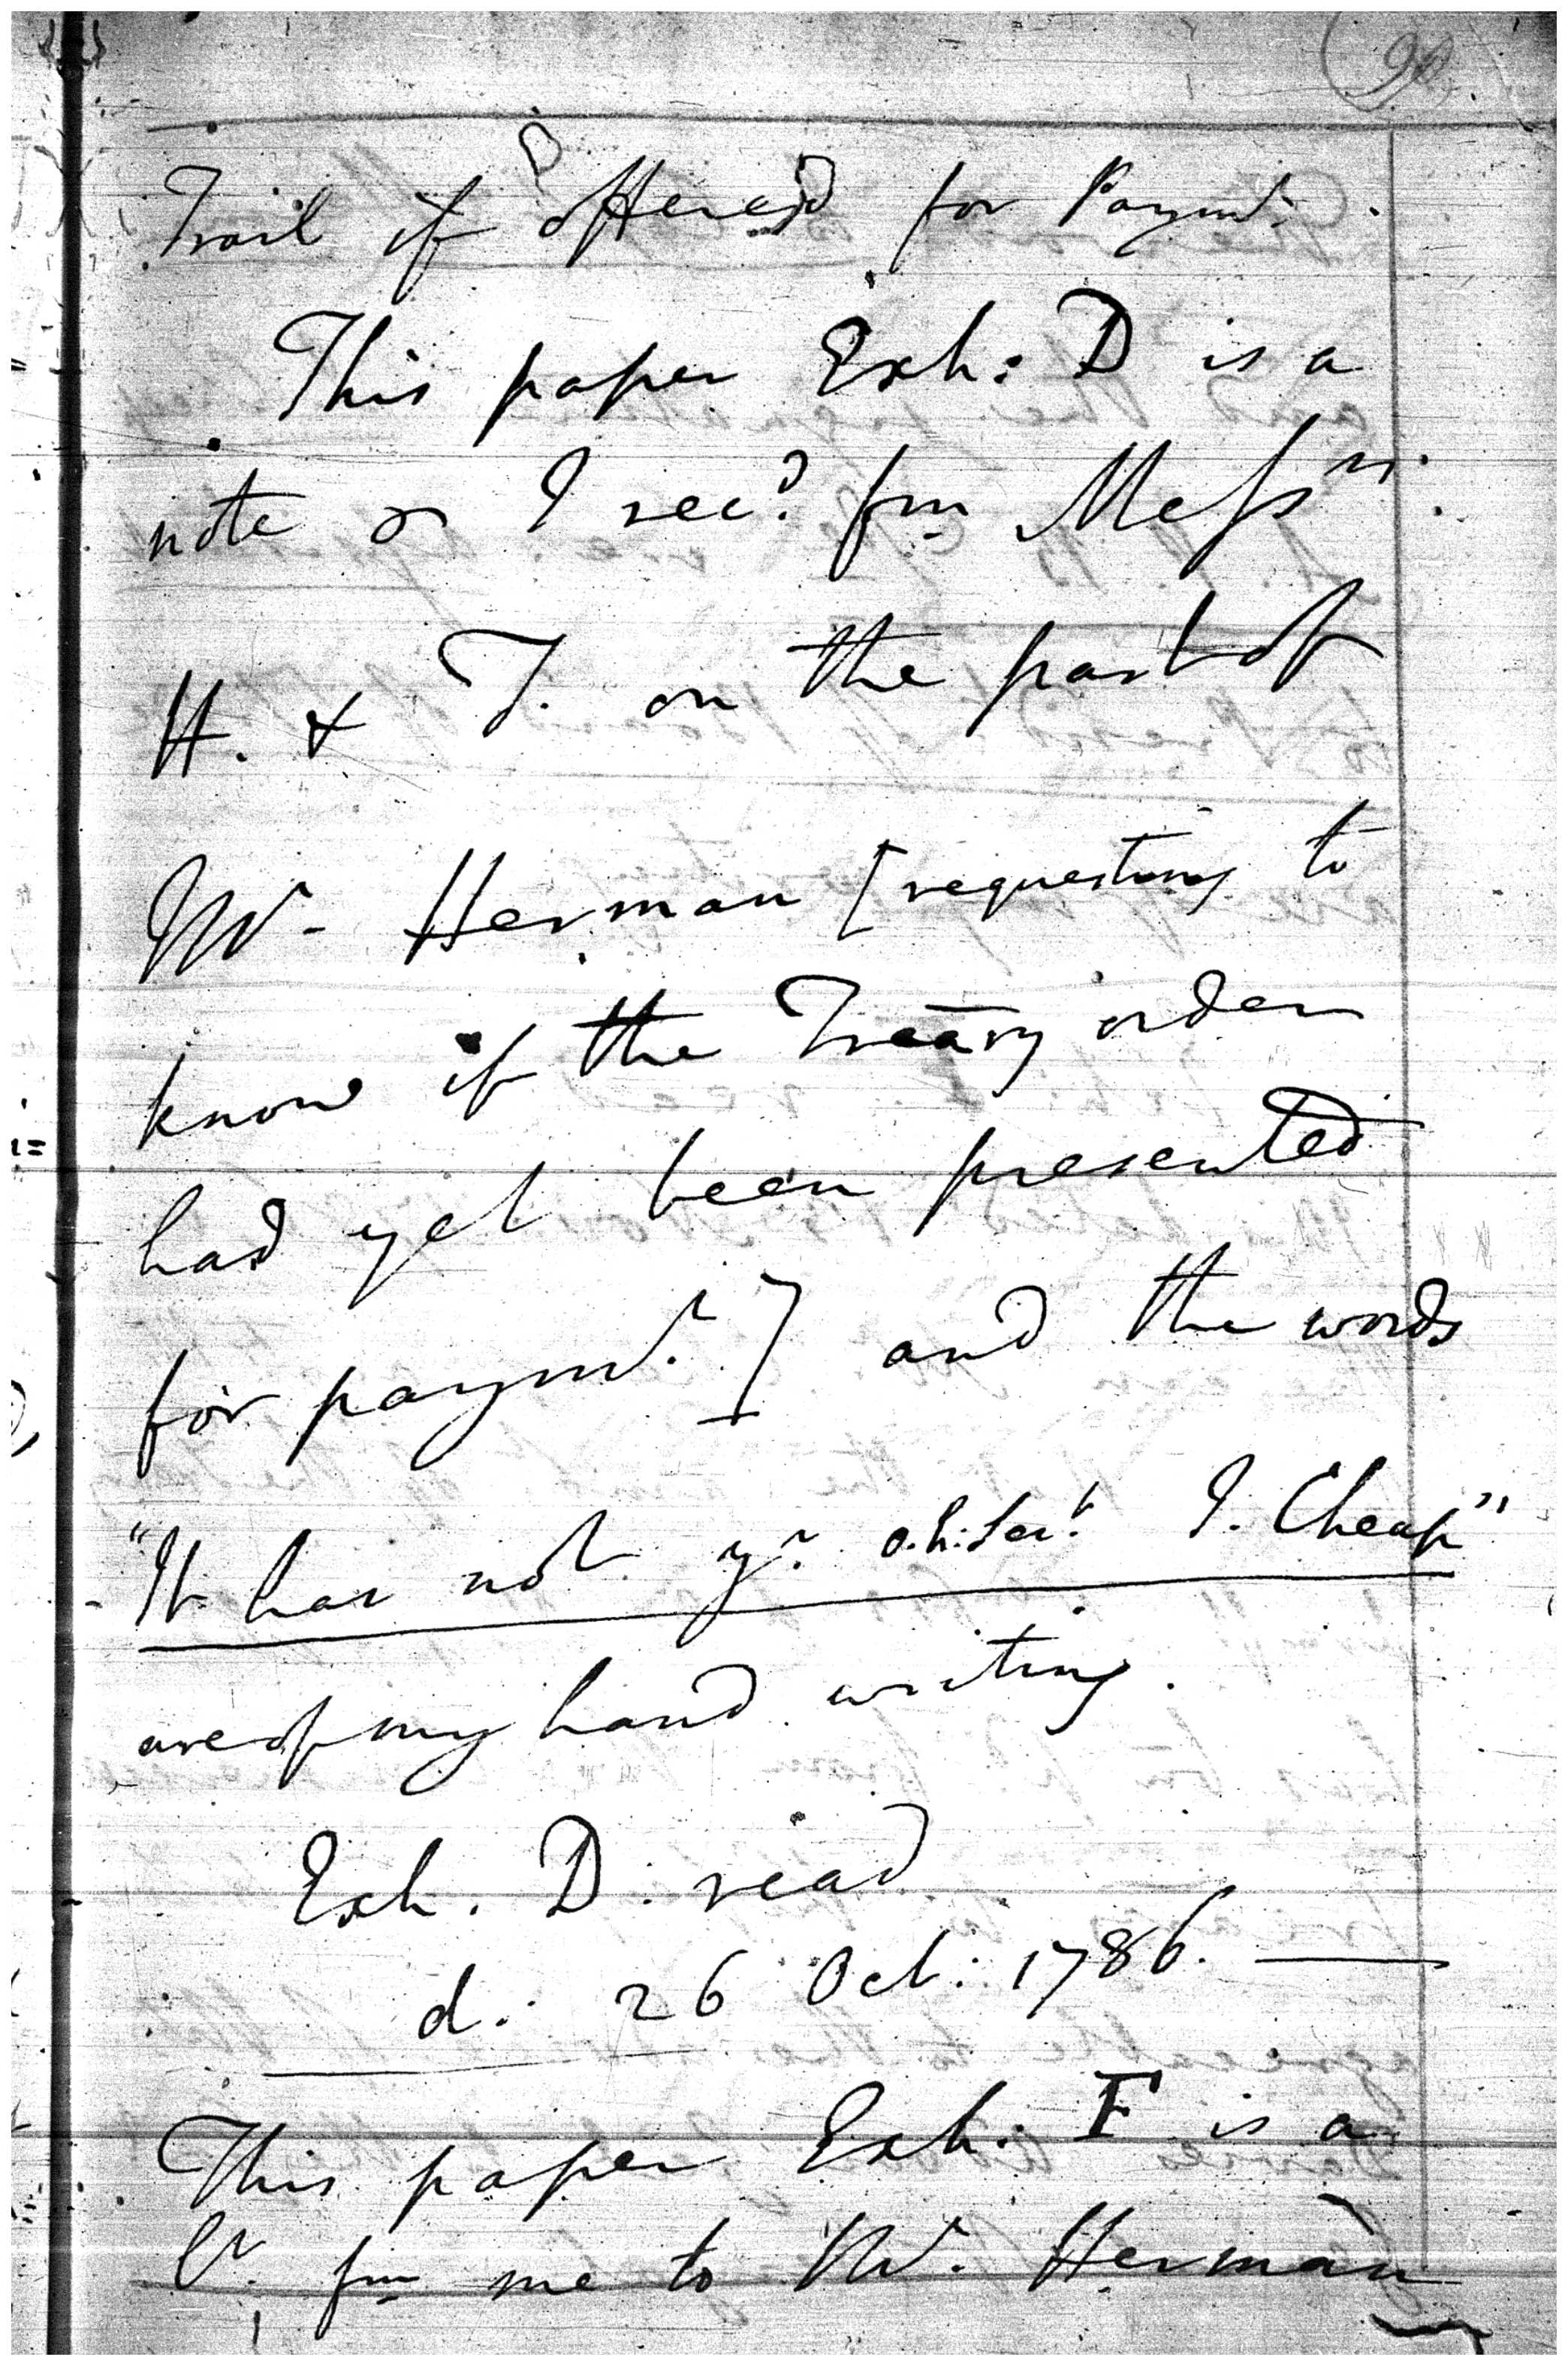 Trail if offered for Paymt.
This paper Exh: D is a
note I recd. fm Messrs.
H. & T. on the part of
Mr Herman [requesting to
know if the Treãry order
had yet been presented
for paymt.] and the words
"It has not yr. o.h: Sert. J. Cheap"
are of my hand writing.
Exh. D. read
d: 26 Oct: 1786.
This paper Exh. F is a
Lr. fm me to Mr. Herman